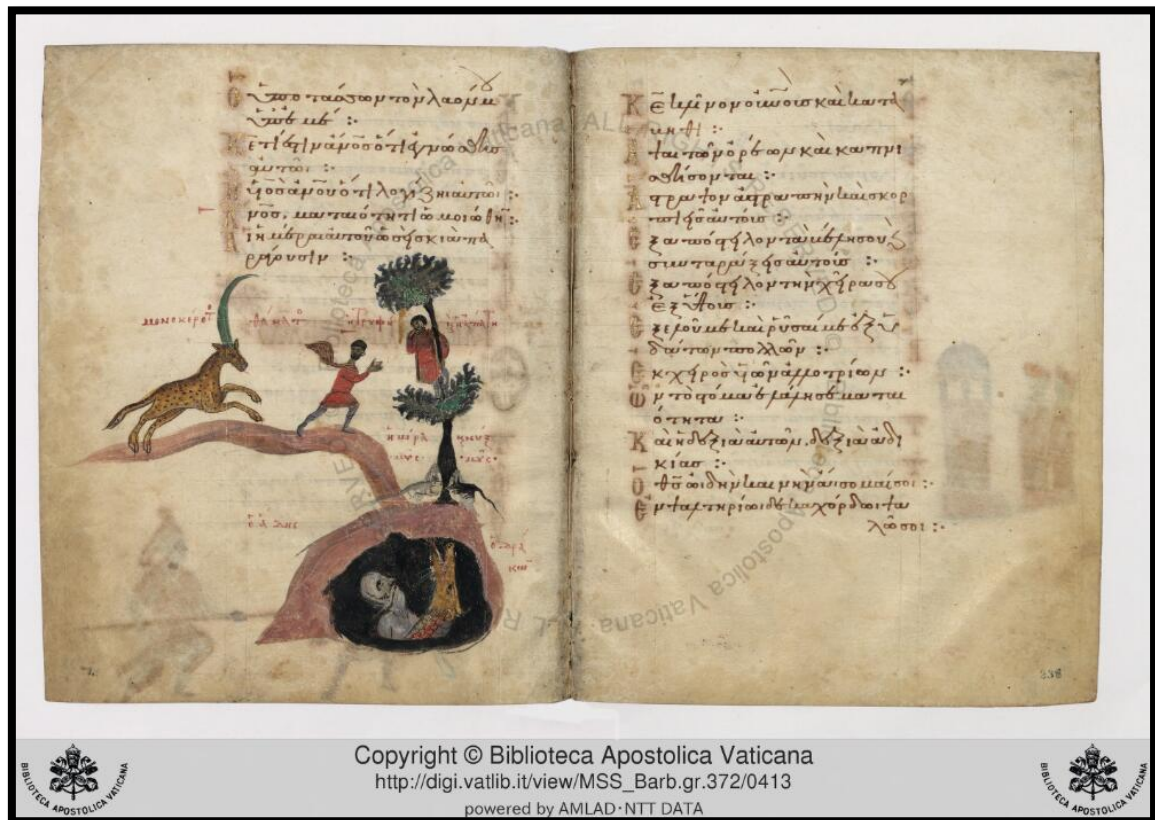 Ὁ ὑποτάσσων τὸν λαόν μου
ὑπ' ἐμέ :·
Κε τί ἐστιν ἄνος ὅτι ἐγνώσθης
αὐτῶι :·
Ἢ υἱὸς ἀνου ὅτι λογίζηι αὐτόν :·
Ἄνος, ματαιότητι ὡμοιώθη :·
Αἱ ἡμέραι αὐτοῦ ὡσεὶ σκιὰ πα
ράγουσιν :·
ὁ ἅδης
ὁ δρά
κων
Κε κλῖνον οὐνους καὶ κατά
βηθι :·
Ἅψαι τῶν ὀρέων καὶ καπνι
σθήσονται :·
Ἄστραψον ἀστραπὴν καὶ σκορ
πιεῖς αὐτούς :·
Ἐξαπόστειλον τὰ βέλη σου ϗ
συνταράξεις αὐτούς :·
Ἐξαπόστειλον τὴν χεῖρά σου
ἐξ ὕψους :·
Ἐξελοῦ με καὶ ῥῦσαι με ἐξ ὑ
δάτων πολλῶν :·
Ἐκ χειρὸς υἱῶν ἀλλοτρίων :·
Ὧν τὸ στόμα ἐλάλησε μαται
ότητα :·
Καὶ ἡ δεξιὰ αὐτῶν, δεξιὰ ἀδι
κίας :·
Ὁ θς ὠιδὴν καινὴν ἄισομαί σοι :·
Ἐν ψαλτηρίωι δεκαχόρδωι ψα
λῶ σοι :·
338
Copyright © Biblioteca Apostolica Vaticana
http://digi.vatlib.it/view/MSS_Barb.gr.372/0413
powered by AMLAD·NTT DATA
BIBLIOTECA APOSTOLICA VATICANA
BIBLIOTECA APOSTOLICA VATICANA